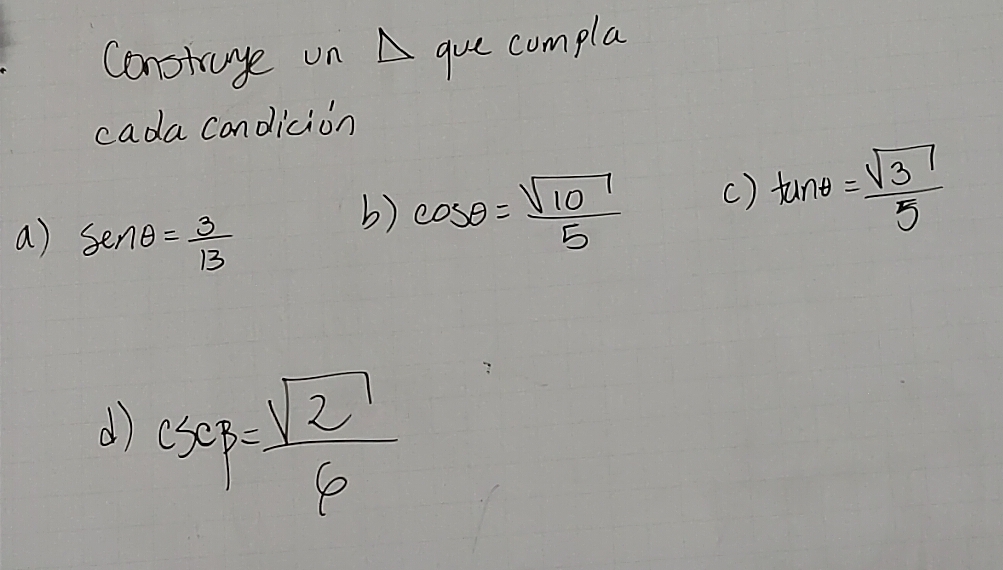 Construye un △ que cumpla
cada condición
a) senθ = 3/13
b) cosθ = √10/5
c) tanθ = √3/5
d) cscβ = √2/6